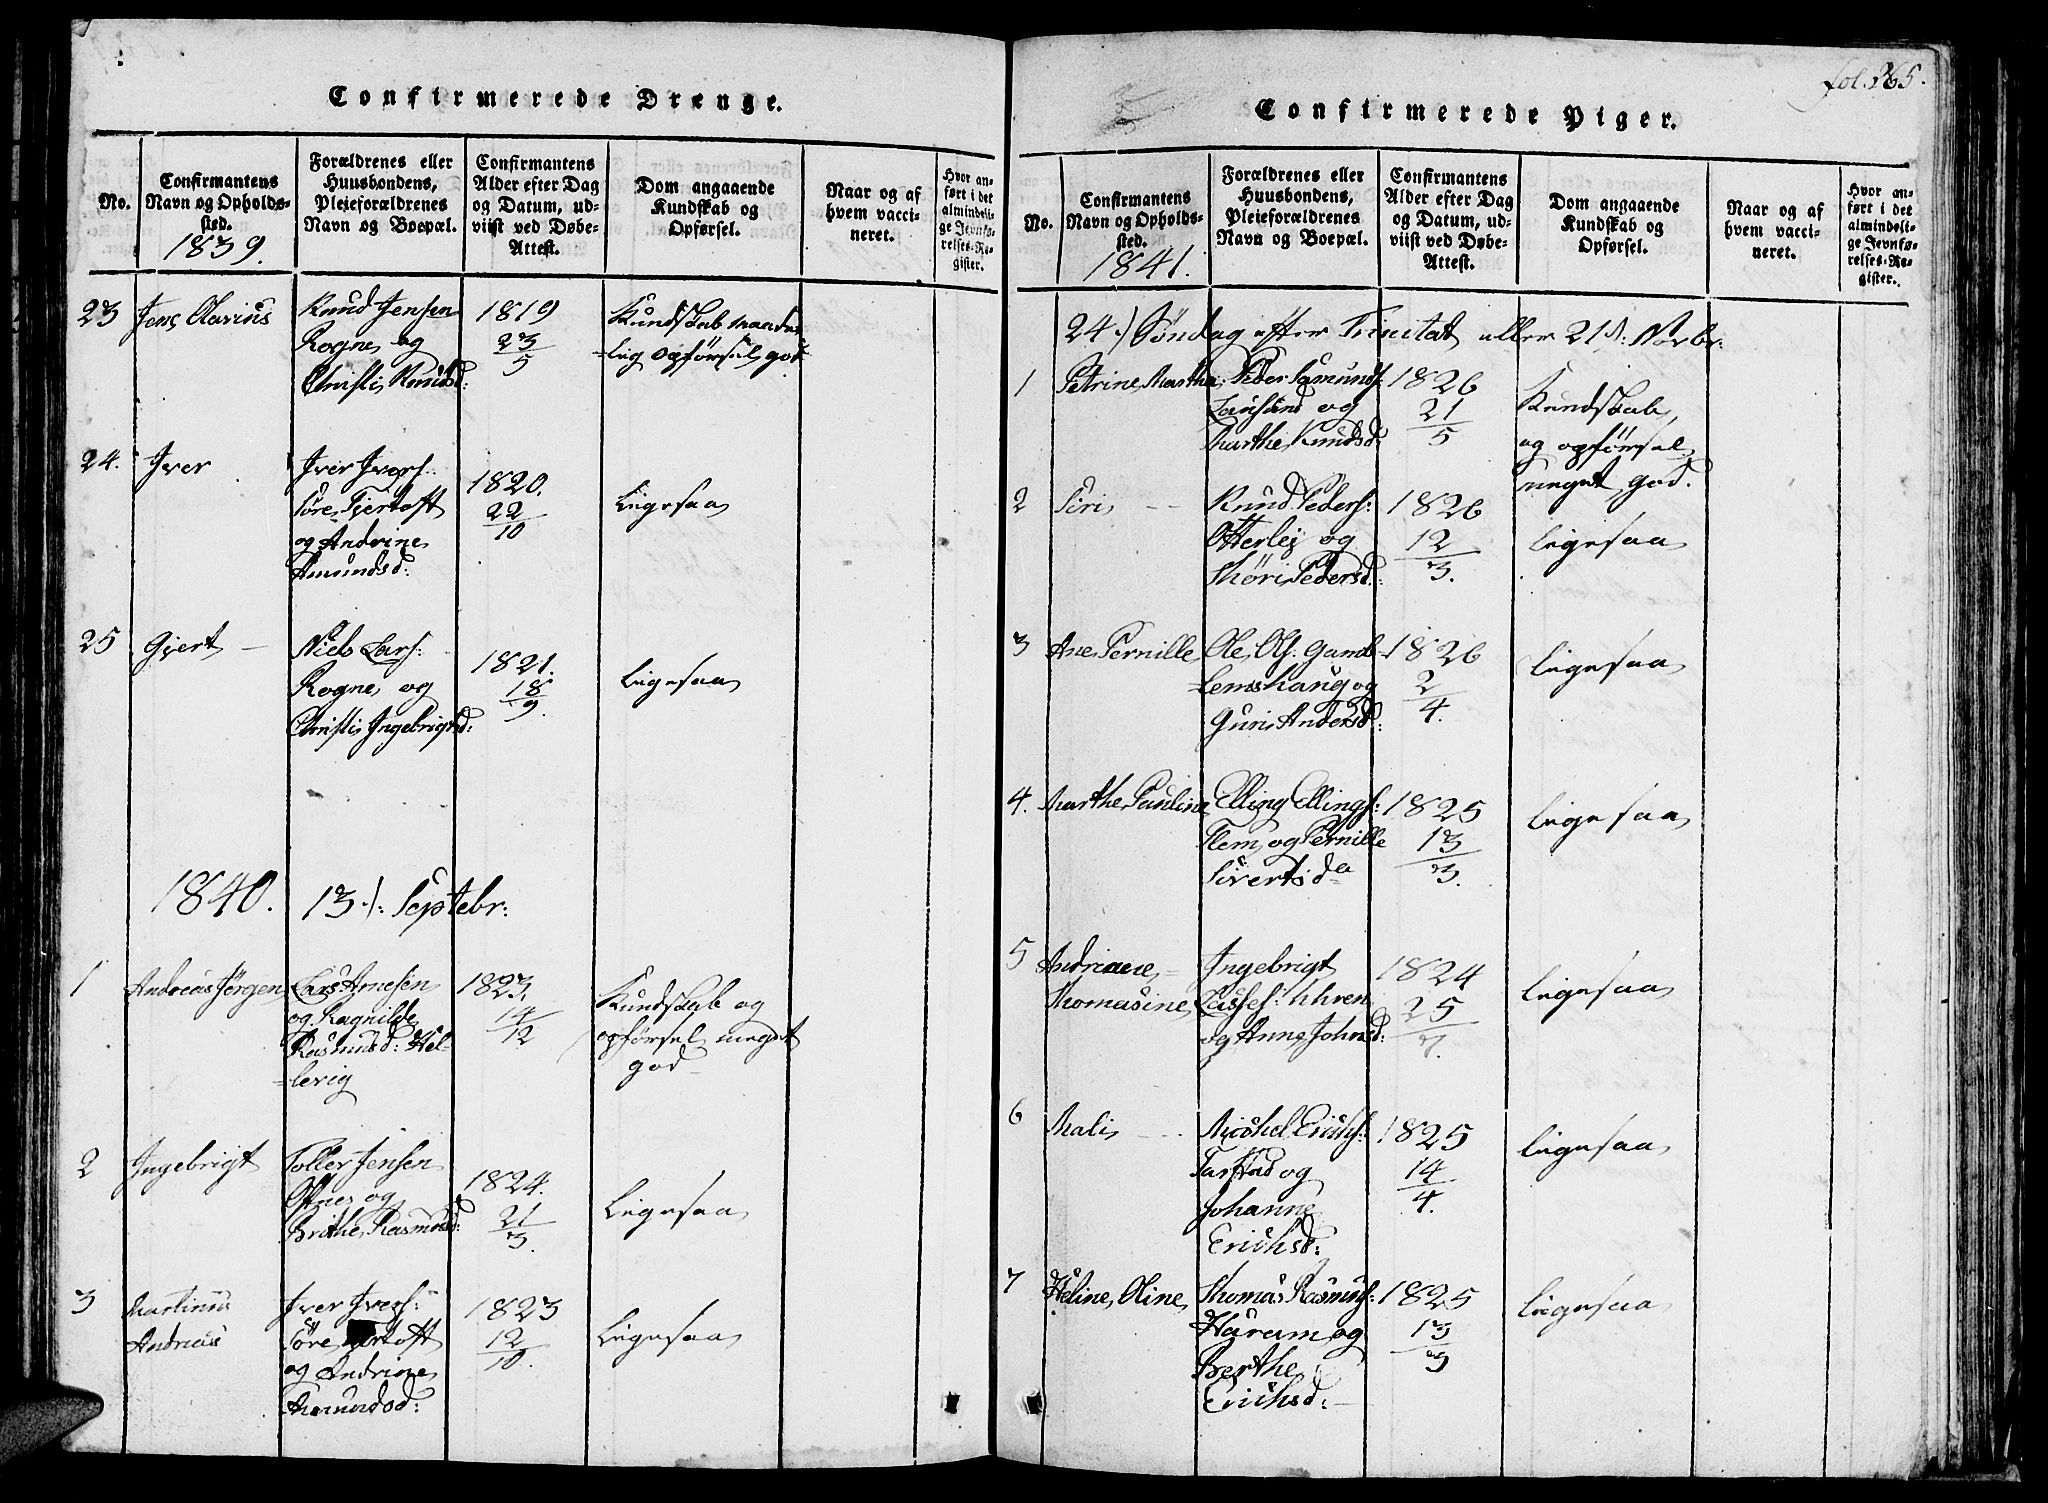 Confirmerede Drenge.
No.
Confirmantens
Navn og Opholds-
sted.
1839.
Forældrenes eller
Huusbondens,
Pleieforældrenes
Navn og Boepæl.
Confirmantens
Alder efter Dag
og Datum, ud-
viist ved Døbe-
Attest.
Dom angaaende
Kundskab og
Opførsel.
Naar og af
hvem vacci-
neret.
Hvor an-
ført i det
almindeli-
ge Jevnfø-
relses-Re-
gister.
23 Jens Olavius
Knud Jensen
Rogne og
Christi Knudsd:
1819
23
5
Kundskab maade-
=lig opførsel god
24. Iver
Iver Ivers:
Søre Fjertoft
og Andrine
Amundsd:
1820.
22
10
Ligesaa
25 Gjert —
Niels Lars:
Rogne og
Christi Ingebrigtsd:
1821.
18
9.
Ligesaa
1840. 13/: Septebr:
1 Andreas Jørgen
Lars Arnesen
og Ragnilde
Rasmusd: Hel-
=lerig
1823.
14
12
Kundskab og
opførsel meget
god
2 Ingebrigt
Toller Jensen
Ofnes og
Brithe Rasmusd:
1824.
21
3.
Ligesaa
3 Martinus
Andreas
Iver Ivers:
Søre Fjertoft
og Andrine
Amundsd:
1823
12
10.
Ligesaa
fol. 365.
Confirmerede Piger.
No.
Confirmantens
Navn og Opholds-
sted.
1841.
Forældrenes eller
Huusbondens,
Pleieforældrenes
Navn og Boepæl.
Confirmantens
Alder efter Dag
og Datum, ud-
viist ved Døbe-
Attest.
Dom angaaende
Kundskab og
Opførsel.
Naar og af
hvem vacci-
neret.
Hvor an-
ført i det
almindeli-
ge Jevnfø-
relses-Re-
gister.
24/ Søndag efter Trinitat eller 21/: Novbr:
1 Petrine Martha
Peder Samunds:
Longsund og
Marthe Knudsd
1826
21
5
Kundskab
og opførsel
meget god.
2 Siri --
Knud Peders:
Otterlej og
Thøri Pedersd:
1826
12
3.
Ligesaa
3 Ane Pernille
Ole Ols: Gam-
=lemshaug og
Guri Andersd:
1826
2
4.
Ligesaa
4. Marthe Pauline
Elling Ellings:
Flem og Pernille
Sivertsda
1825
13
3.
Ligesaa
5 Andriane =
Thomasine
Ingebrigt
Lasses: Uhren
og Anne Johnsd:
1824
25
7.
Ligesaa
6 Mali --
Michel Erichs:
Tarstad og
Johanne
Erichsd:
1825
14
4.
Ligesaa
7 Heline Oline
Thomas Rasmus:
Haram og
Berthe
Erichsd:
1825
13
3
Ligesaa